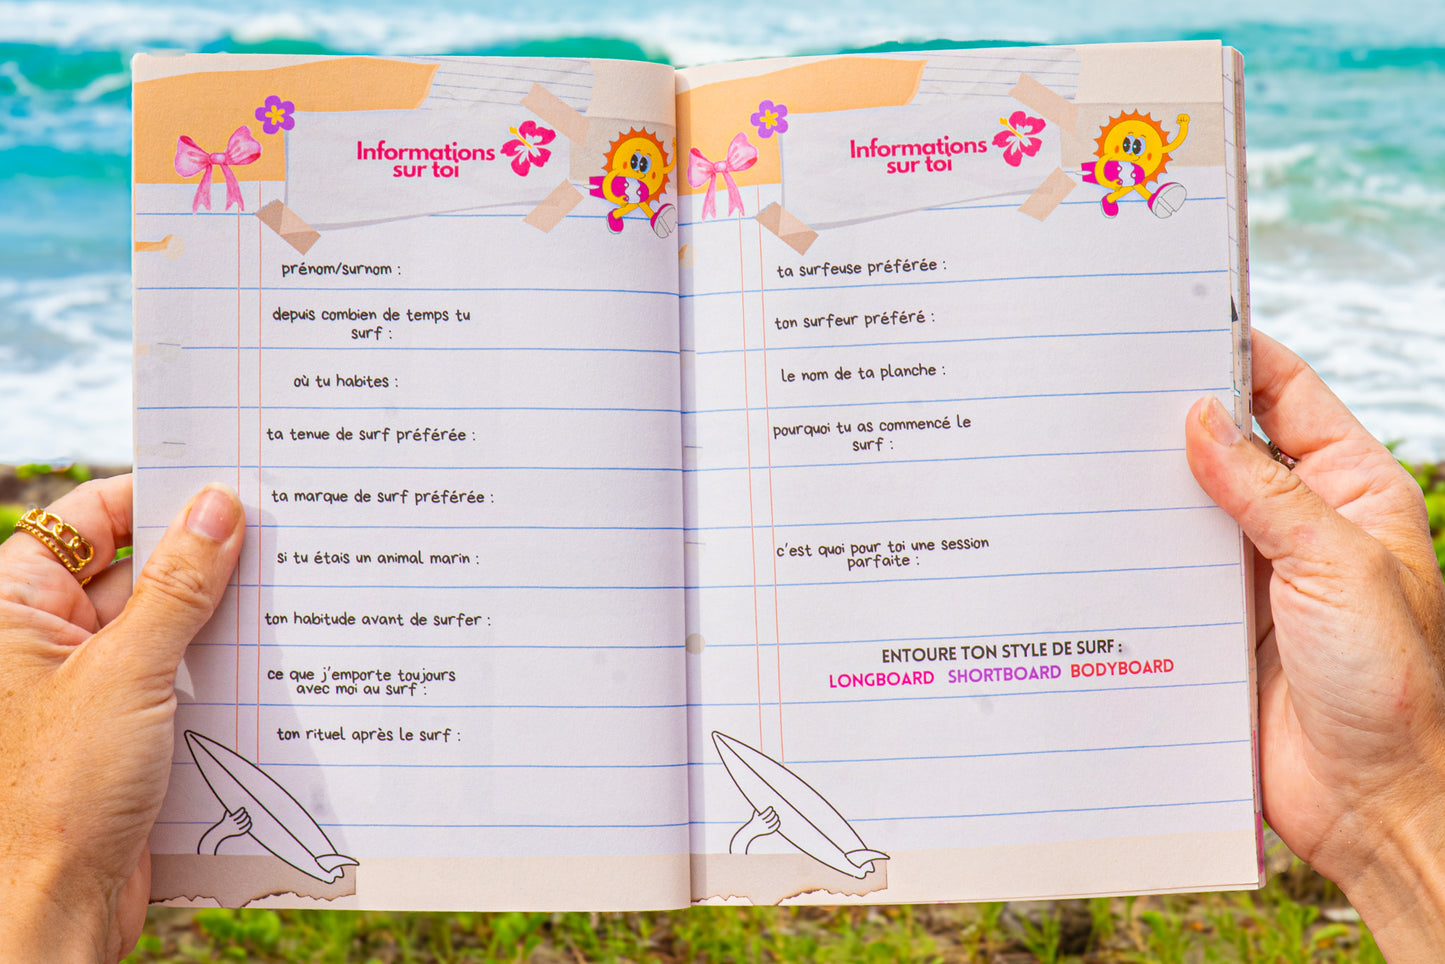 Informations
sur toi
prénom/surnom :
depuis combien de temps tu
surf :
où tu habites :
ta tenue de surf préférée :
ta marque de surf préférée :
si tu étais un animal marin :
ton habitude avant de surfer :
ce que j'emporte toujours
avec moi au surf :
ton rituel après le surf :
Informations
sur toi
ta surfeuse préférée :
ton surfeur préféré :
le nom de ta planche :
pourquoi tu as commencé le
surf :
c'est quoi pour toi une session
parfaite :
ENTOURE TON STYLE DE SURF :
LONGBOARD SHORTBOARD BODYBOARD